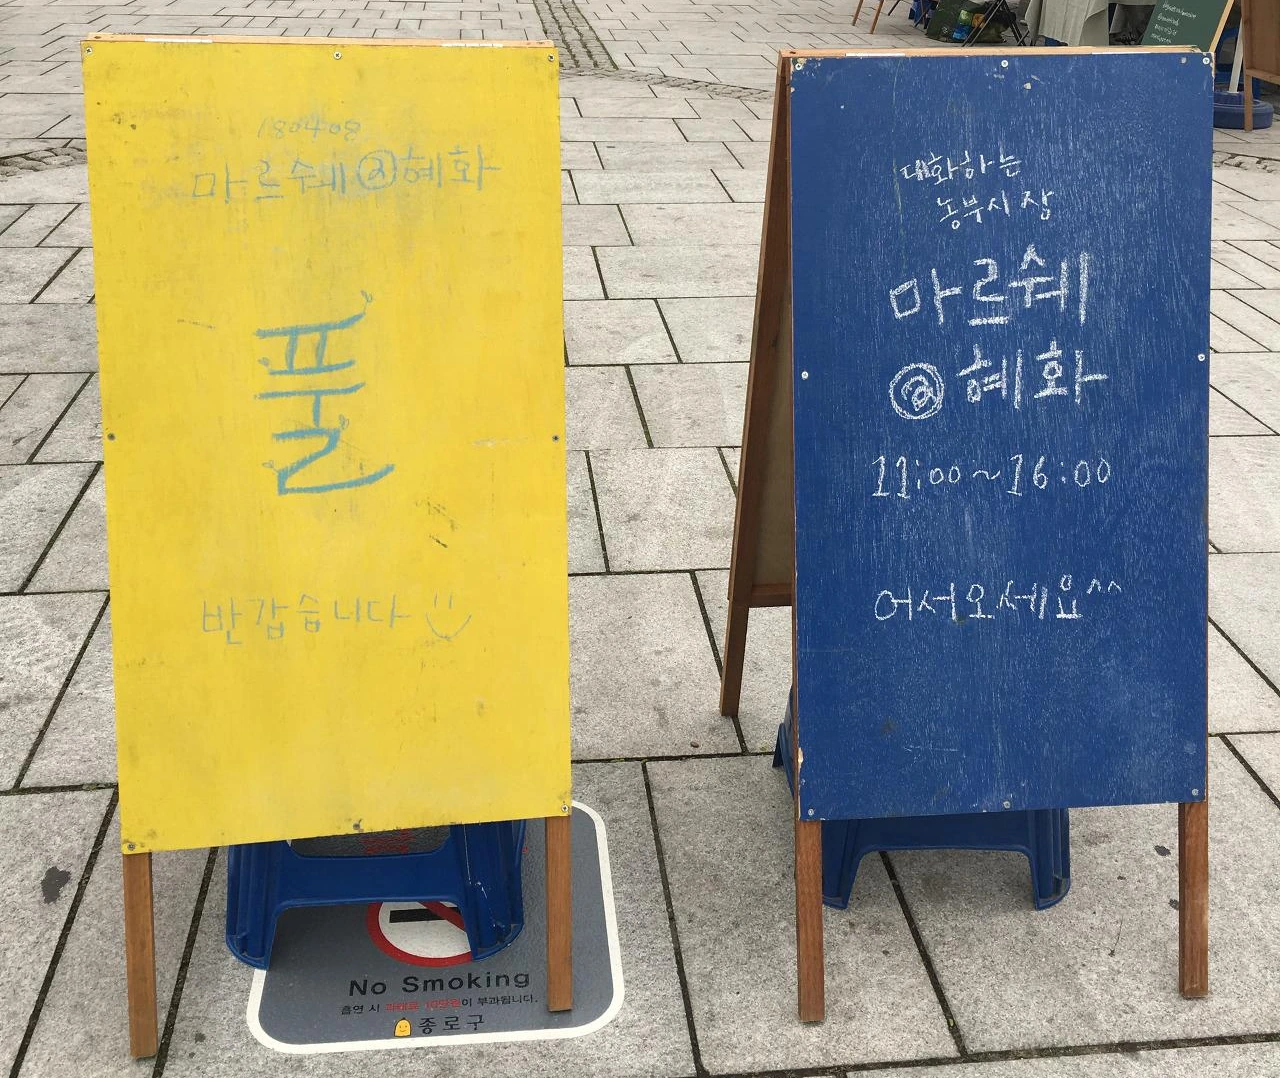 180408
마르쉐@혜화
풀
반갑습니다
대화하는
농부시장
마르쉐
@혜화
11:00~16:00
어서오세요^^
No Smoking
흡연 시 과태료 10만원이 부과됩니다.
종로구